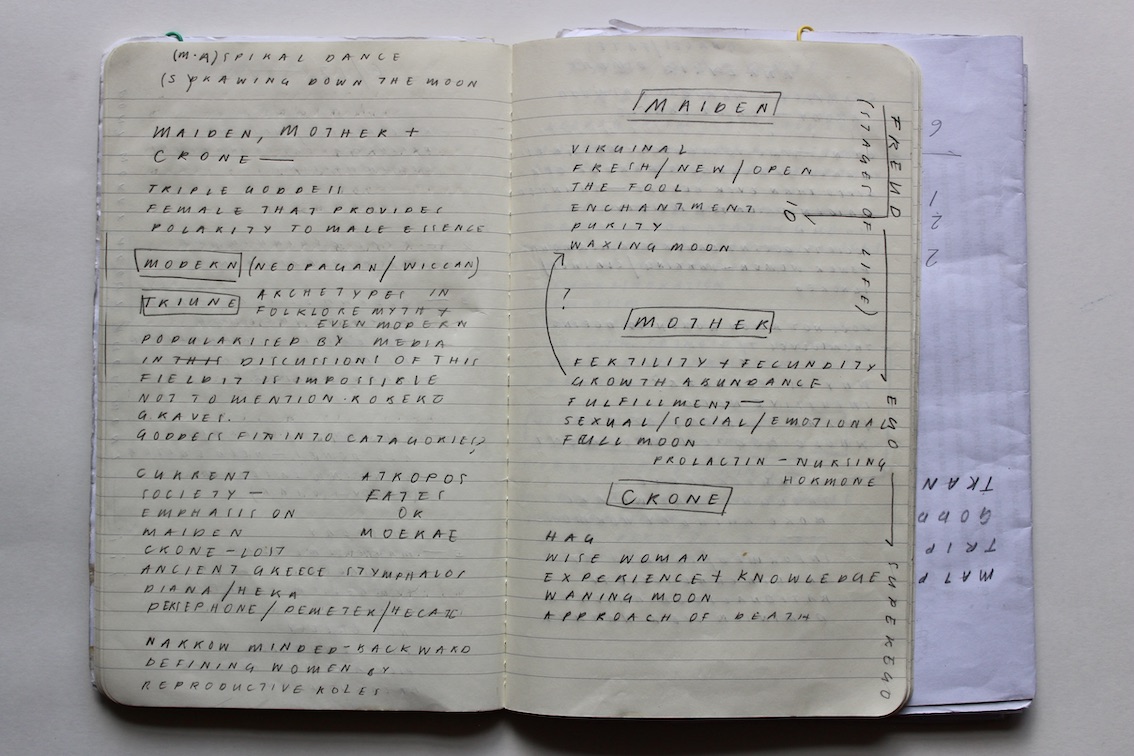 (M.A) SPIRAL DANCE
(S) DRAWING DOWN THE MOON
MAIDEN, MOTHER +
CRONE —
TRIPLE GODDESS
FEMALE THAT PROVIDES
POLARITY TO MALE ESSENCE
MODERN (NEOPAGAN/WICCAN)
TRIUNE ARCHETYPES IN
FOLKLORE MYTH +
EVEN MODERN
POPULARISED BY MEDIA
IN THIS DISCUSSIONS OF THIS
FIELD IT IS IMPOSSIBLE
NOT TO MENTION ROBERT
GRAVES.
GODDESS FIT INTO CATAGORIES?
CURRENT
SOCIETY —
EMPHASIS ON
MAIDEN
CRONE - LOST
ATROPOS
FATES
OR
MOERAE
ANCIENT GREECE STYMPHALOS
DIANA/HERA
PERSEPHONE/DEMETER/HECATE
NARROW MINDED - BACKWARD
DEFINING WOMEN BY
REPRODUCTIVE ROLES
MAIDEN
VIRGINAL
FRESH/NEW/OPEN
THE FOOL
ENCHANTMENT
PURITY
WAXING MOON
?
?
MOTHER
FERTILITY + FECUNDITY
GROWTH ABUNDANCE
FULFILLMENT —
SEXUAL/SOCIAL/EMOTIONAL
FULL MOON
PROLACTIN - NURSING
HORMONE
CRONE
HAG
WISE WOMAN
EXPERIENCE + KNOWLEDGE
WANING MOON
APPROACH OF DEATH
FREUD
(STAGES OF LIFE)
ID
EGO
SUPEREGO
6
1
2
2
TRAN
GODD
TRIP
MATP